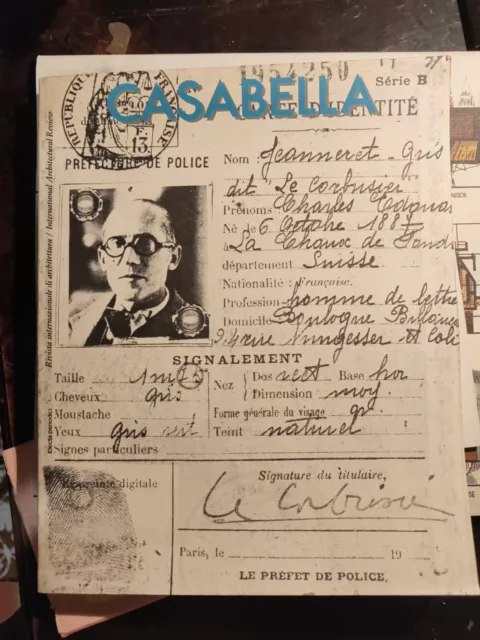 1954250
Série B
CASABELLA
CARTE D'IDENTITÉ
RÉPUBLIQUE FRANÇAISE
13.
PRÉFECTURE DE POLICE
Nom : Jeanneret-Gris
dit "Le Corbusier"
Prénoms Charles Edouar
Né le 6 Octobre 1887
à La Chaux de Fonds
département Suisse
Nationalité : Française.
Profession homme de lettre
Domicile Boulogne Billanc
24 rue Nungesser et Coli
SIGNALEMENT
Taille 1m75
Cheveux gris
Moustache
Yeux gris vert
Signes particuliers
Nez Dos rect Base hor
Dimension moy.
Forme générale du visage
Teint naturel
Empreinte digitale
Signature du titulaire,
Le Corbusier
Paris, le 19
LE PRÉFET DE POLICE,
Rivista internazionale di architettura / International Architectural Review
Electa periodici